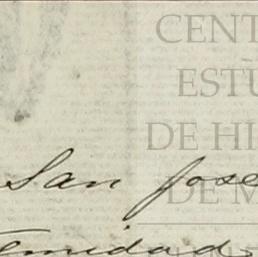 CENT
ESTU
DE HI
San Jose
DE M